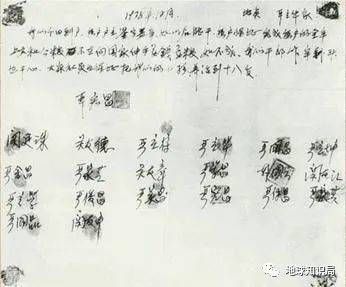 1978年12月 地点 严立华家
我们分田到户，每户户主签字盖章，如以后能干，每户保证完成每户的全年
上交和公粮，不在向国家伸手要钱要粮，如不成，我们干部作牢刹头
也干心，大家社员也保证把我们的小孩养活到十八岁
严宏昌
关廷珠 关友德 严立符 严立华 严国昌 严立坤
严金昌 严家芝 关友章 严学昌 韩国云 关友江
严立学 严俊昌 严美昌 严宏昌 严付昌 严家其
严国品 关友申
地球知识局